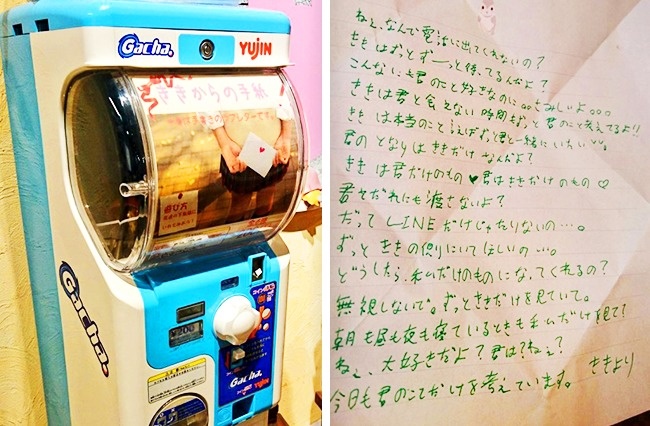 Gacha.
YUJIN
ききからの手紙
遊び方
Gacha.
¥200
Gacha.
YUJIN
ねぇ、なんで電話に出てくれないの?
ききはずっとずーっと待ってるんだよ?
こんなにも君のこと好きなのに。。さみしいよ。。。
ききは君と会えない時間もずっと君のこと考えてるよ!!
ききは本当のこと言えばずっと君と一緒にいたい
君のとなりはききだけなんだよ?
ききは君だけのもの♥君はききだけのもの♡
君をだれにも渡さないよ?
だってLINEだけじゃたりないの…。
ずっとききの側にいてほしいの…。
どうしたら、私だけのものになってくれるの?
無視しないで。ずっとききだけを見ていて。
朝も昼も夜も寝ているときも私だけを見て!
ねぇ、大好きだよ?君は?ねぇ?
今日も君のことだけを考えています。ききより